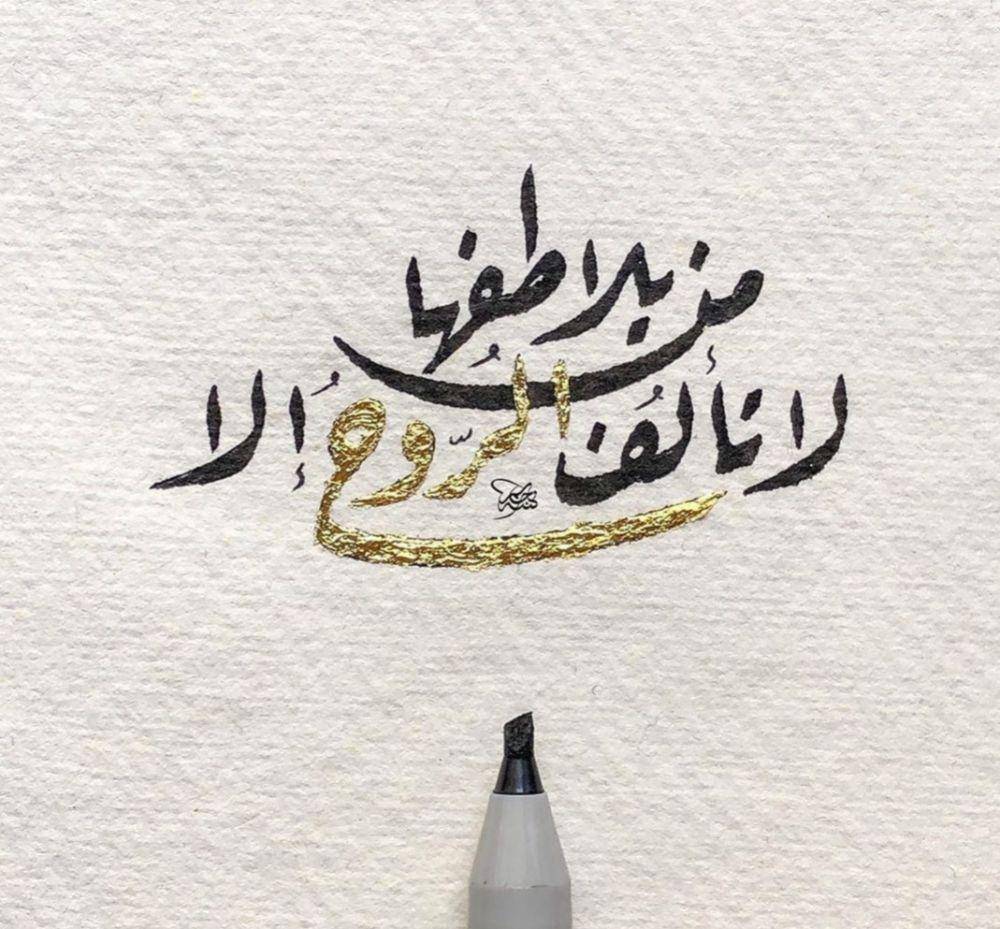 لا تألفُ الرّوحُ إلا
من يلاطفها